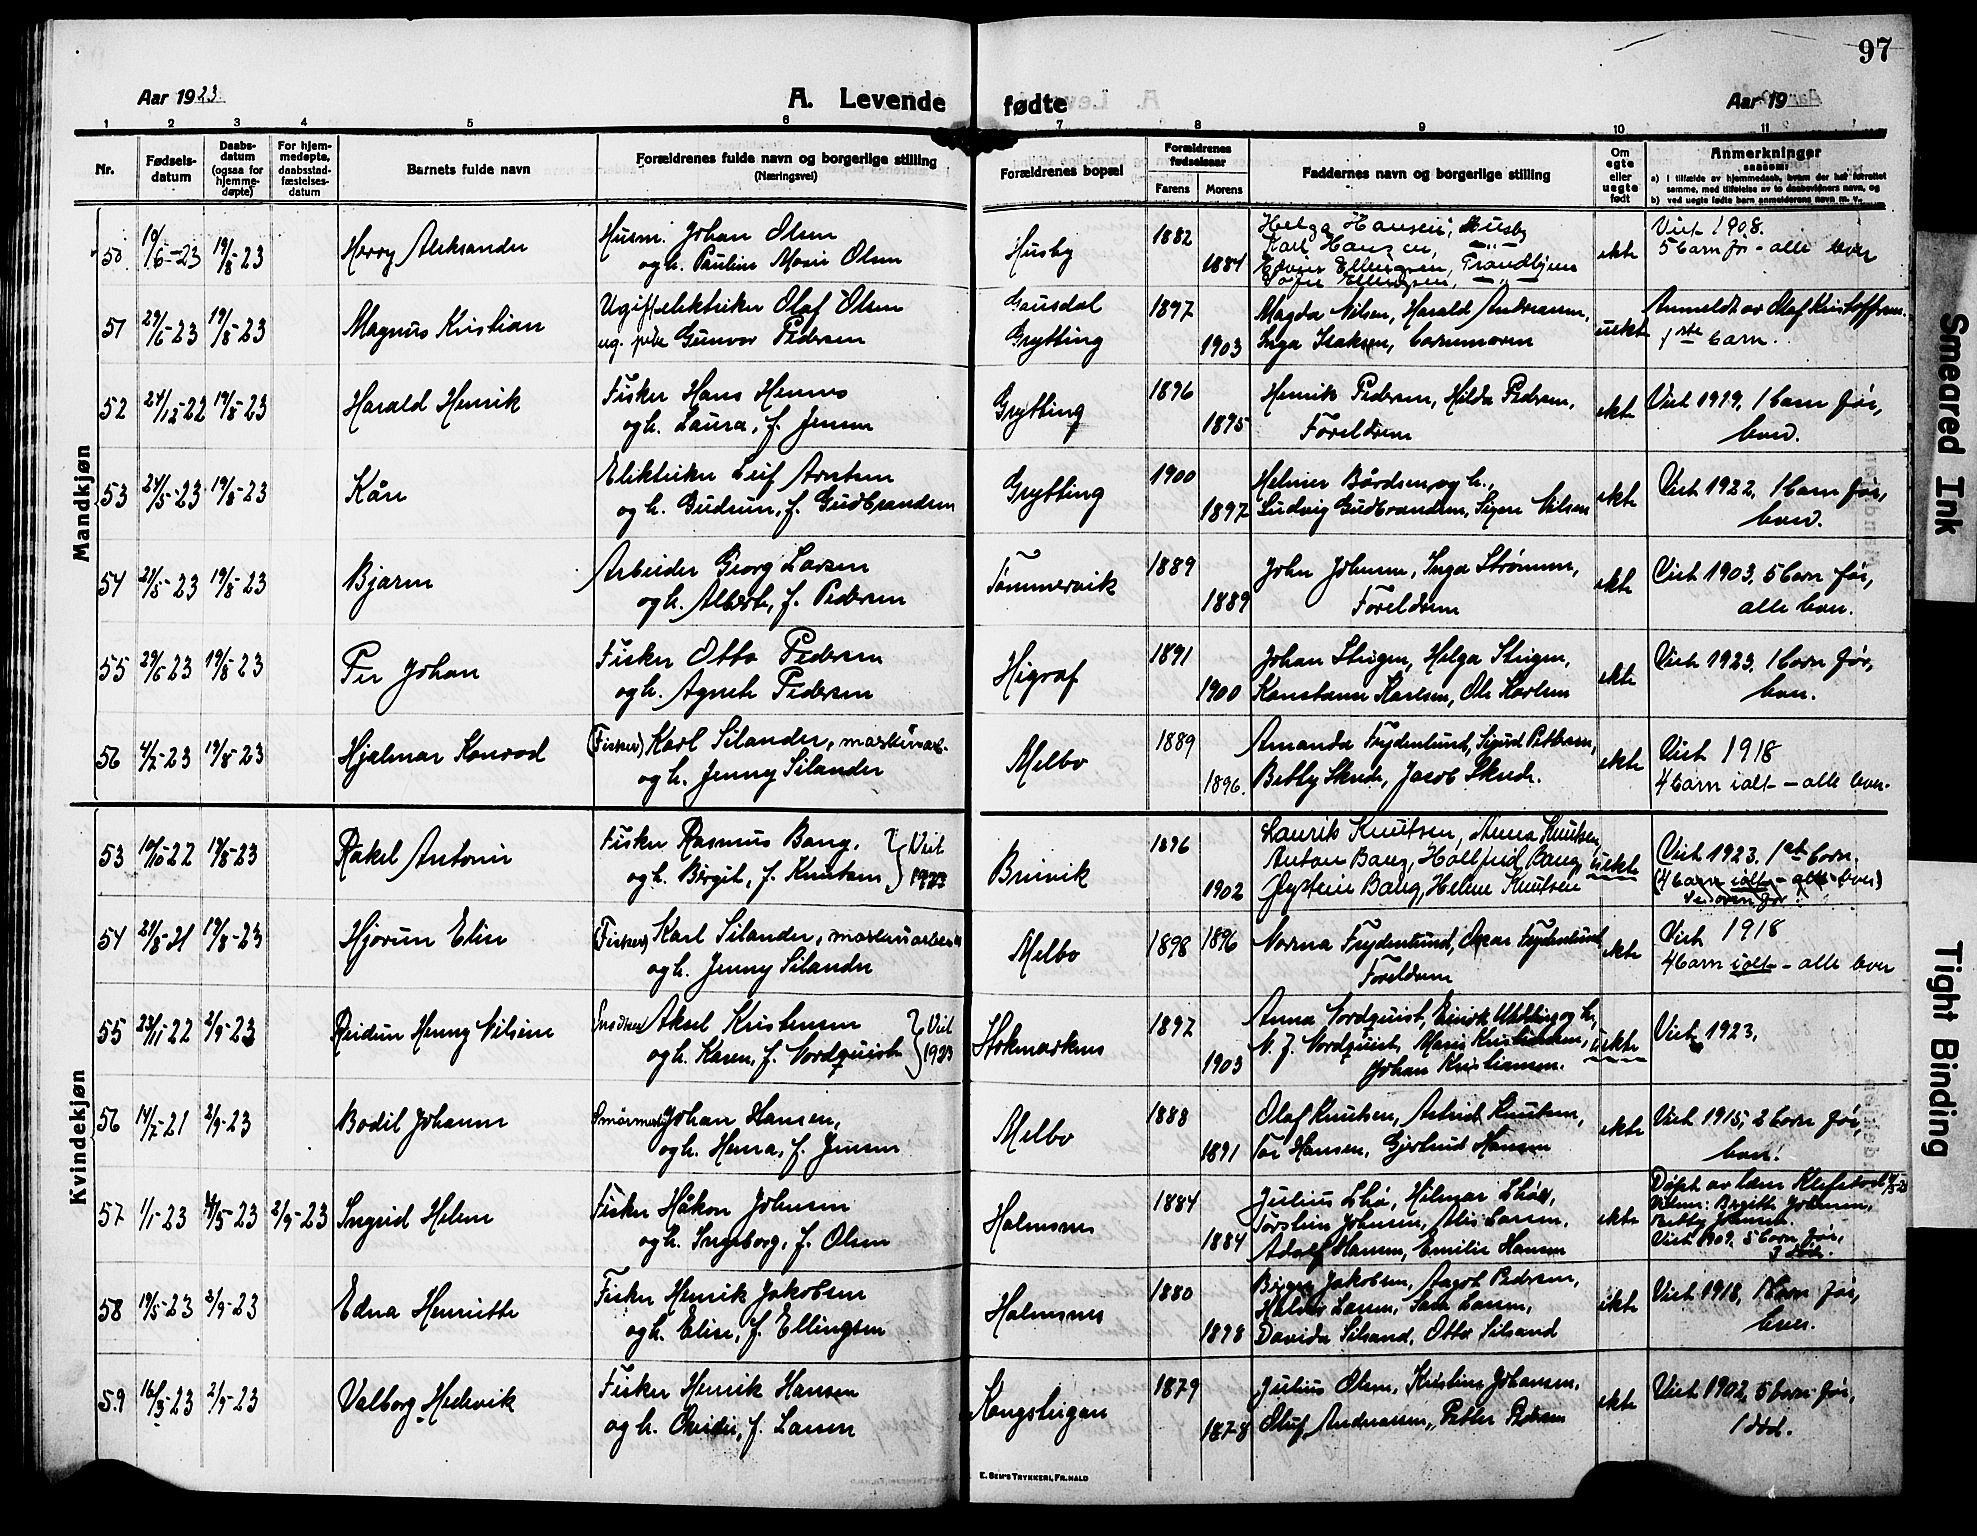 97
Aar 1923.
A. Levende
fødte
Aar 19
1 2 3 4 5 6 7 8 9 10 11
Nr.
Fødsels-
datum
Daabs-
datum
(ogsaa for
hjemme-
døpte)
For hjem-
medøpte,
daabsstad-
fæstelses-
datum
Barnets fulde navn
Forældrenes fulde navn og borgerlige stilling
(Næringsvei)
Forældrenes bopæl
Forældrenes
fødselsaar
Farens Morens
Faddernes navn og borgerlige stilling
Om
egte
eller
uegte
født
Anmerkninger
saasom:
a) i tilfælde av hjemmedaab, hvem der har forrettet
samme, med tilføielse av to daabsvidners navn, og
b) ved uegte fødte barn anmelderens navn m. v.
Mandkjøn
50 19/8-23 Harry Aleksander
Husm. Johan Olsen
og h. Pauline Marie Olsen
Husby 1882 1884
Helga Hansen, Husby
Karl Hansen,
ekte
Viet 1908.
5 barn før - alle lever
51 29/6-23 19/8-23 Magnus Kristian
Ugift elektriker Olaf Olsen
ug. pike Gunvor Pedersen
Gausdal
Grytting
1897 1903
Magda Nilsen, Harald Andreassen,
Inga Isaksen, barnmoren
uekte
Anmeldt av Olaf Kristoffersen.
1ste barn.
52 24/12-22 19/8-23 Harald Henrik
Fisker Hans
og h. Laura, f. Jensen
Grytting 1896 1895
Henrik Pedersen, Hilda Pedersen,
Foreldrene
ekte
Viet 1919, 1 barn før,
lever.
53 24/5-23 19/8-23 Kåre
Elektriker Leif Arntsen
og h. Gudrun, f. Gudbrandsen
Grytting 1900 1897
Helmer Bårdsen og h.,
Ludvig Gudbrandsen, Signe Nilsen
ekte
Viet 1922, 1 barn før,
lever.
54 21/5-23 19/8-23 Bjarne
Arbeider Georg Larsen
og h. Alberte, f. Pedersen
Tømmervik 1889 1889
John Johnsen, Inga Strømmen,
Foreldrene
ekte
Viet 1903, 5 barn før,
alle lever.
55 29/6-23 19/8-23 Per Johan
Fisker Otto Pedersen
og h. Agnete Pedersen
Higraf 1891 1900
Johan Steigen, Helga Steigen,
Konstanse Karlsen, Ole Karlsen
ekte
Viet 1923, 1 barn før,
lever.
56 4/2-23 19/8-23 Hjalmar Konrad
(Fisker) Karl Silander, maskinarb.
og h. Jenny Silander
Melbo 1889 1896.
Amanda Frydenlund, Sigurd Pettersen,
Betty Skrede, Jacob Skrede.
ekte
Viet 1918
4 barn ialt - alle lever.
Kvindekjøn
53 10/10-22 19/8-23 Rakel Antonie
Fisker Rasmus Bang,
og h. Birgit, f. Knutsen
Viet
1923
Breivik 1896 1902
Laurits Knutsen, Anna Knutsen,
Anton Bang, Hallfrid Bang,
Øystein Bang, Helene Knutsen
uekte
Viet 1923. 1ste barn.
(4 barn ialt - alle lever)
54 21/8-21 19/8-23 Hjørun Elise
(Fisker) Karl Silander, maskinarbeider
og h. Jenny Silander
Melbo 1898 1896
Norma Frydenlund, Oscar Frydenlund,
Foreldrene
ekte
Viet 1918
4 barn ialt - alle lever
55 23/11-22 2/9-23 Reidun Henny Nilsine
Aksel Kristensen
og h. Karen, f. Nordquist
Viet
1923
Stokmarknes 1897 1903
Anna Nordquist,
N. J. Nordquist,
Johan Kristiansen.
uekte
Viet 1923.
56 14/7-21 2/9-23 Bodil Johanne
Johan Hansen,
og h. Henra, f. Jensen
Melbo 1888 1891
Olaf Knutsen, Astrid Knutsen,
Tor Hansen, Gjertrud Hansen
ekte
Viet 1915, 2 barn før,
lever.
57 1/1-23 4/3-23 2/9-23 Ingrid Helene
Fisker Håkon Johnsen
og h. Ingeborg, f. Olsen
Holmsnes 1884 1884
Torstein Johnsen, Alis Larsen,
Adolf Hansen, Emilie Hansen
ekte
Viet 1909, 5 barn før,
3 døde.
58 19/5-23 2/9-23 Edna Henriette
Fisker Henrik Jakobsen
og h. Elise, f. Ellingsen
Holmsnes 1880 1898
Birger Jakobsen, Aagot Pedersen,
Halvor Larsen, Sara Larsen,
Davida Silsand, Otto Silsand
ekte
Viet 1918, 1 barn før,
lever.
59 16/3-23 2/9-23 Valborg Hedevik
Fisker Henrik Hansen
og h. Ovidie, f. Larsen
Kongsteigan 1879 1878
Julius Olsen, Kristine Johansen,
Oluf Andreassen, Petter Pedersen
ekte
Viet 1902, 5 barn før,
1 død.
E. SEM'S TRYKKERI, FR.HALD
Smeared Ink
Tight Binding